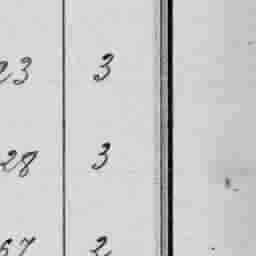 23 3
28 3
57 2